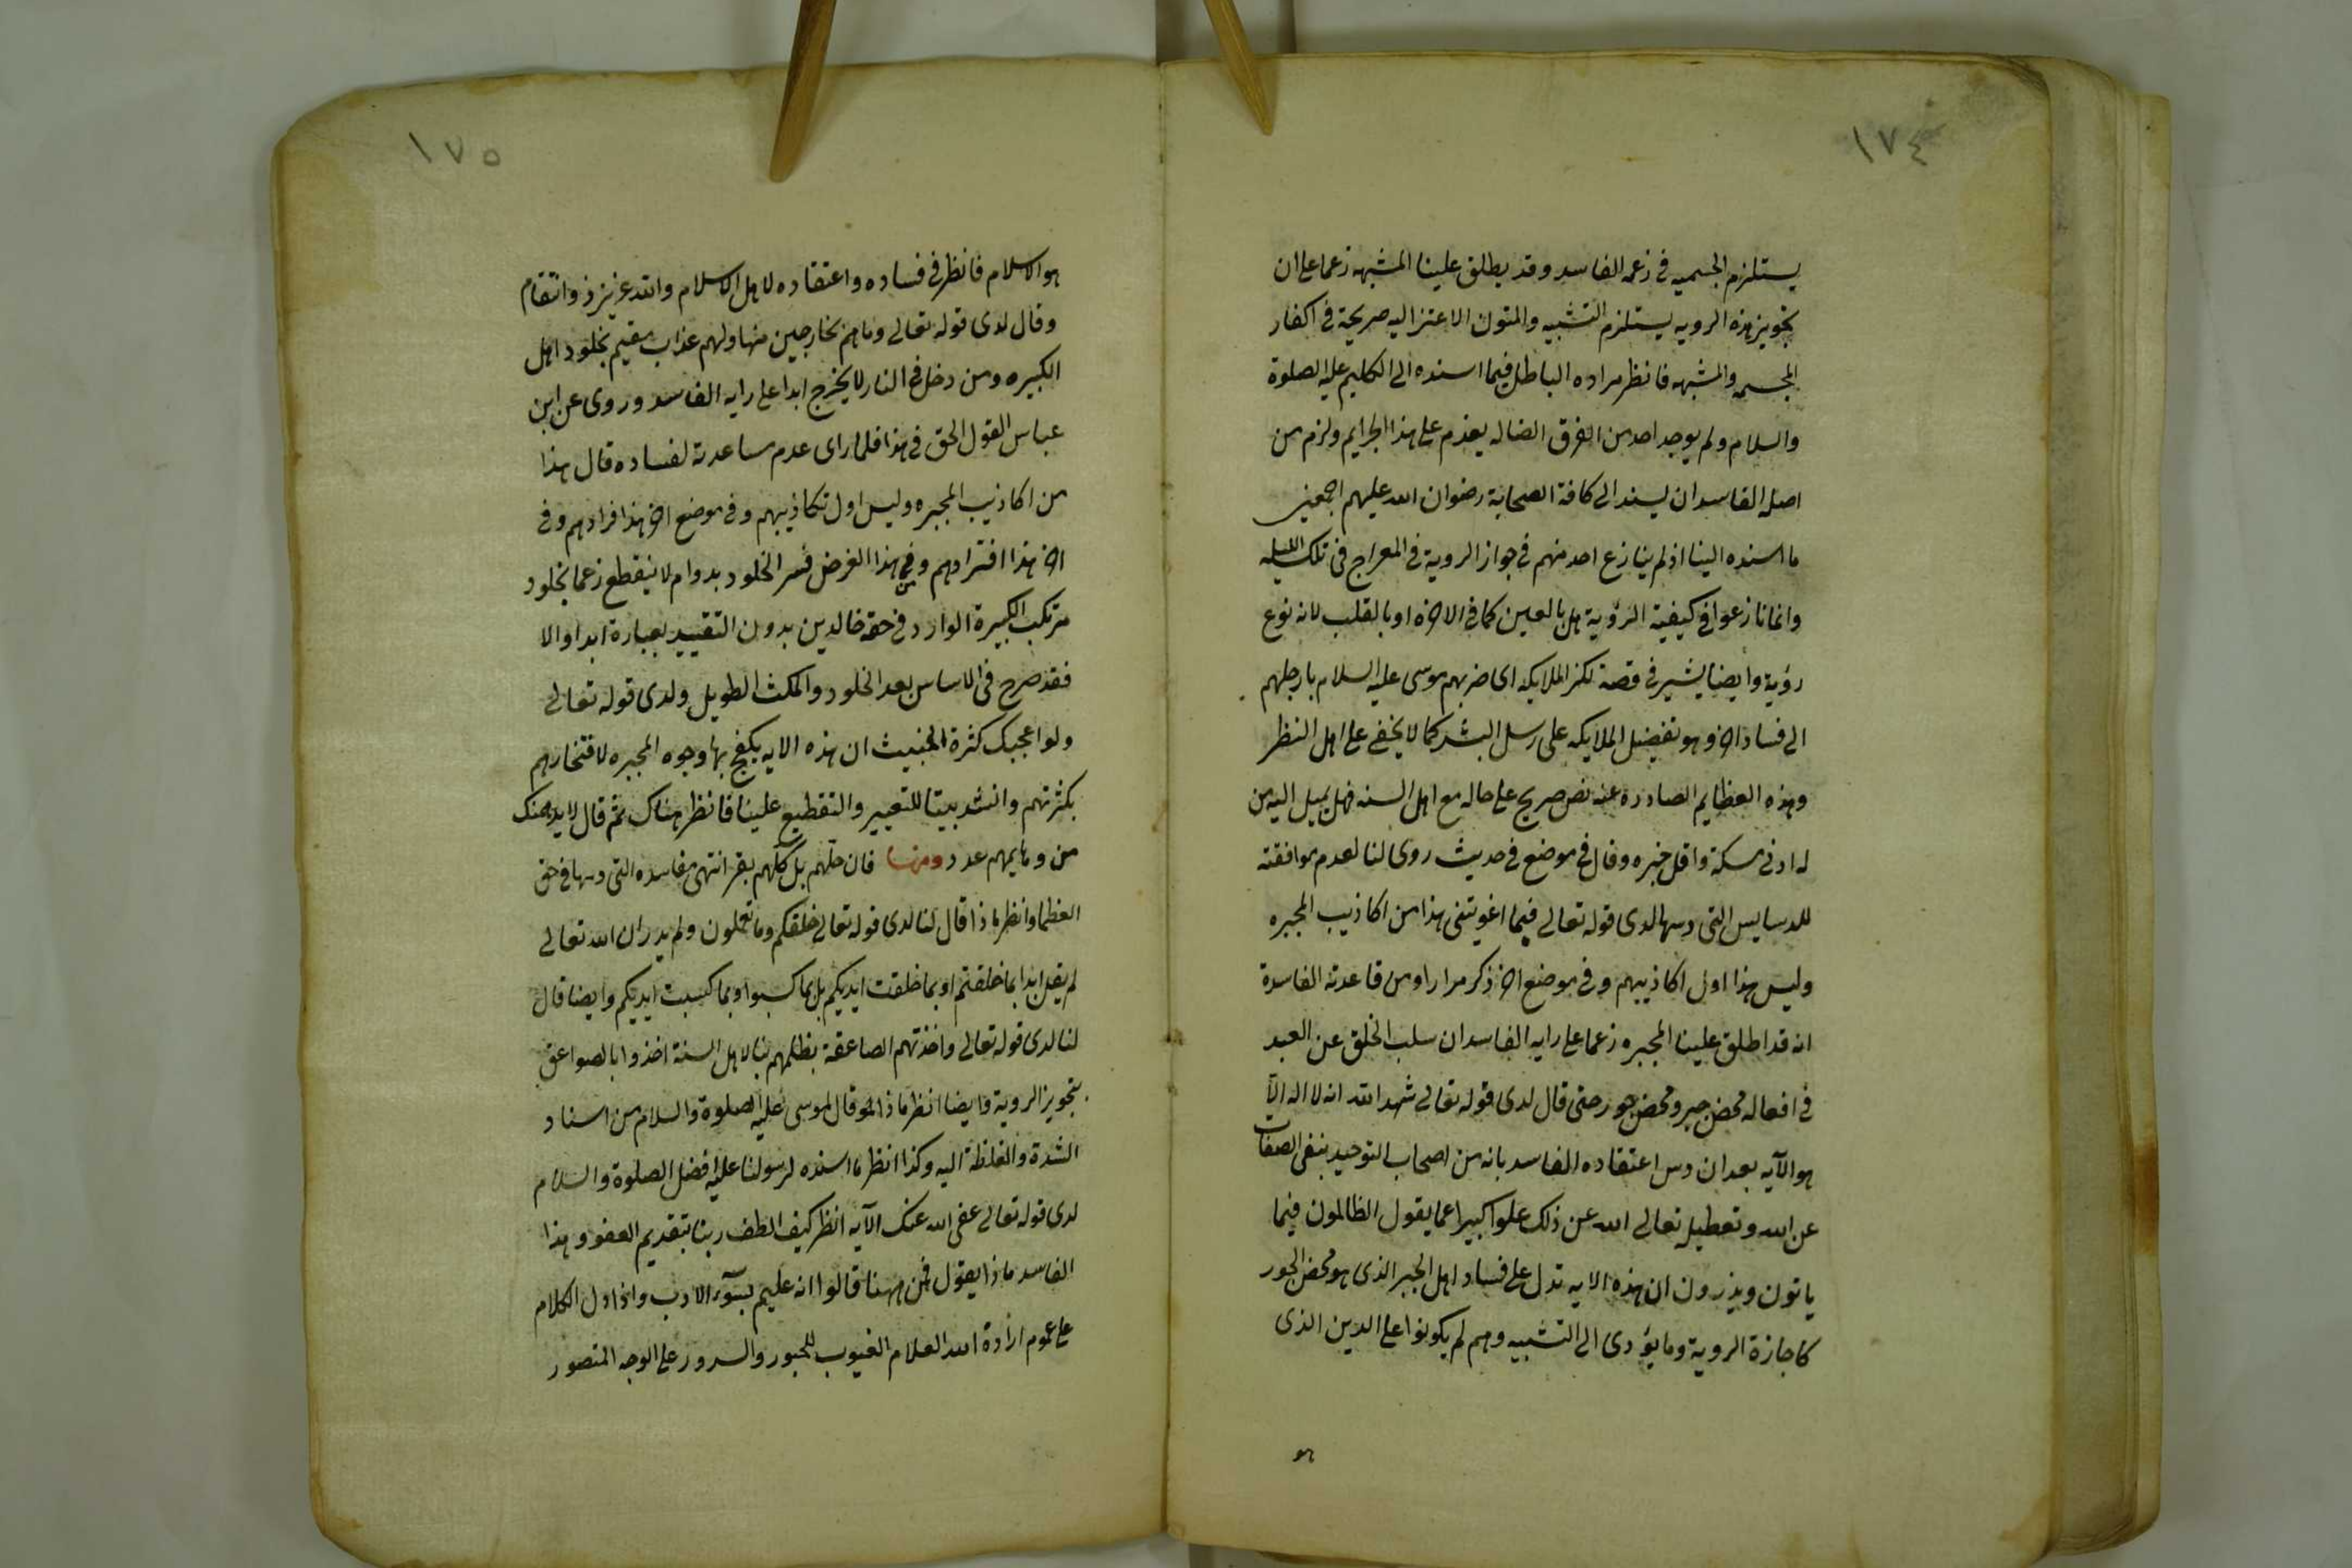 ١٧٤
يستلزم الجسميه في زعمه الفاسد وقد يطلق علينا المشبهه زعما على ان
بتجويز هذه الرويه يستلزم التشبيه والمتون الاعتزاليه صريحة في اكفار
المجسمه والمشبهه فانظر مراده الباطل فيما اسنده الى الكليم عليه الصلوة
والسلام ولم يوجد احد من الفرق الضاله يعزم على هذا الجرايم ولزم من
اصله الفاسد ان يسند الى كافة الصحابة رضوان الله عليهم اجمعين
ما اسنده الينا اذ لم ينازع احد منهم في جواز الروية في المعراج في تلك الليله
وانما نازعوا في كيفية الرؤية هل بالعين كما في الاخره او بالقلب لانه نوع
رؤية وايضا يشير في قصة لكز الملايكه اى ضربهم موسى عليه السلام بارجلهم
الى فساد اخر وهو تفضيل الملايكه على رسل البشر كما لا يخفى على اهل النظر
وهذه العظايم الصادره عنه نص صريح على حاله مع اهل السنه فهل يميل اليه من
له ادنى مسكة واقل خبره وقال في موضع في حديث روى لنا لعدم موافقته
للدسايس التى دسها لدى قوله تعالى فبما اغويتنى هذا من اكاذيب المجبره
وليس هذا اول اكاذيبهم وفى موضع اخر ذكر مرارا ومن قاعدته الفاسدة
انه قد اطلق علينا المجبره زعما على رايه الفاسد ان سلب الخلق عن العبد
في افعاله محض جبر ومحض جور حتى قال لدى قوله تعالى شهد الله انه لا اله الّا
هو الآيه بعد ان دس اعتقاده الفاسد بانه من اصحاب التوحيد بنفى الصفات
عن الله وتعطيله تعالى الله عن ذلك علوا كبيرا عما يقول الظالمون فيما
ياتون ويذرون ان هذه الايه تدل على فساد اهل الجبر الذى هو محض الجور
كاجازة الروية وما يؤدى الى التشبيه وهم لم يكونوا على الدين الذى
هو
١٧٥
هو الاسلام فانظر في فساده واعتقاده لاهل الاسلام والله عزيز ذو انتقام
وقال لدى قوله تعالى وما هم بخارجين منها ولهم عذاب مقيم بخلود اهل
الكبيره ومن دخل في النار لا يخرج ابدا على رايه الفاسد وروى عن ابن
عباس القول الحق في هذا فلما راى عدم مساعدته لفساده قال هذا
من اكاذيب المجبره وليس اول تكاذيبهم وفى موضع اخر هذا فراوهم وفى
اخر هذا افتراوهم وفى هذا الغرض فسر الخلود بدوام لا ينقطع زعما بخلود
مرتكب الكبيرة الوارد في حقه خالدين بدون التقييد بعبارة ابدا والا
فقد صرح في الاساس بعد الخلود والمكث الطويل ولدى قوله تعالى
ولو اعجبك كثرة الخبيث ان هذه الايه يكفح بها وجوه المجبره لافتخارهم
بكثرتهم وانشد بيتا للتعيير والتقطيع علينا فانظر هناك ثم قال لا يدهمنك
من دهمايهم عدد ومنها فان جلّهم بل كلّهم بقر انتهى مفاسده التى دسها في حق
العظما وانظر ماذا قال لنا لدى قوله تعالى خلقكم وما تعملون ولم يدر ان الله تعالى
لم يقل ابدا بما خلقتم او بما خلقت ايديكم بل بما كسبوا وبما كسبت ايديكم وايضا قال
لنا لدى قوله تعالى واخذتهم الصاعقة بظلمهم تبا لاهل السنة اخذوا بالصواعق
بتجويز الروية وايضا انظر ماذا قال لموسى عليه الصلوة والسلام من اسناد
الشدة والغلظة اليه وكذا انظر ما اسنده لرسولنا عليه افضل الصلوة والسلام
لدى قوله تعالى عفى الله عنك الآيه انظر كيف الطف ربنا بتقديم العفو وهذا
الفاسد ماذا يقول فمن ههنا قالوا انه عليم بسوء الادب واذا دل الكلام
على عموم ارادة الله العلام الغيوب للحبور والسرور على الوجه المنصور